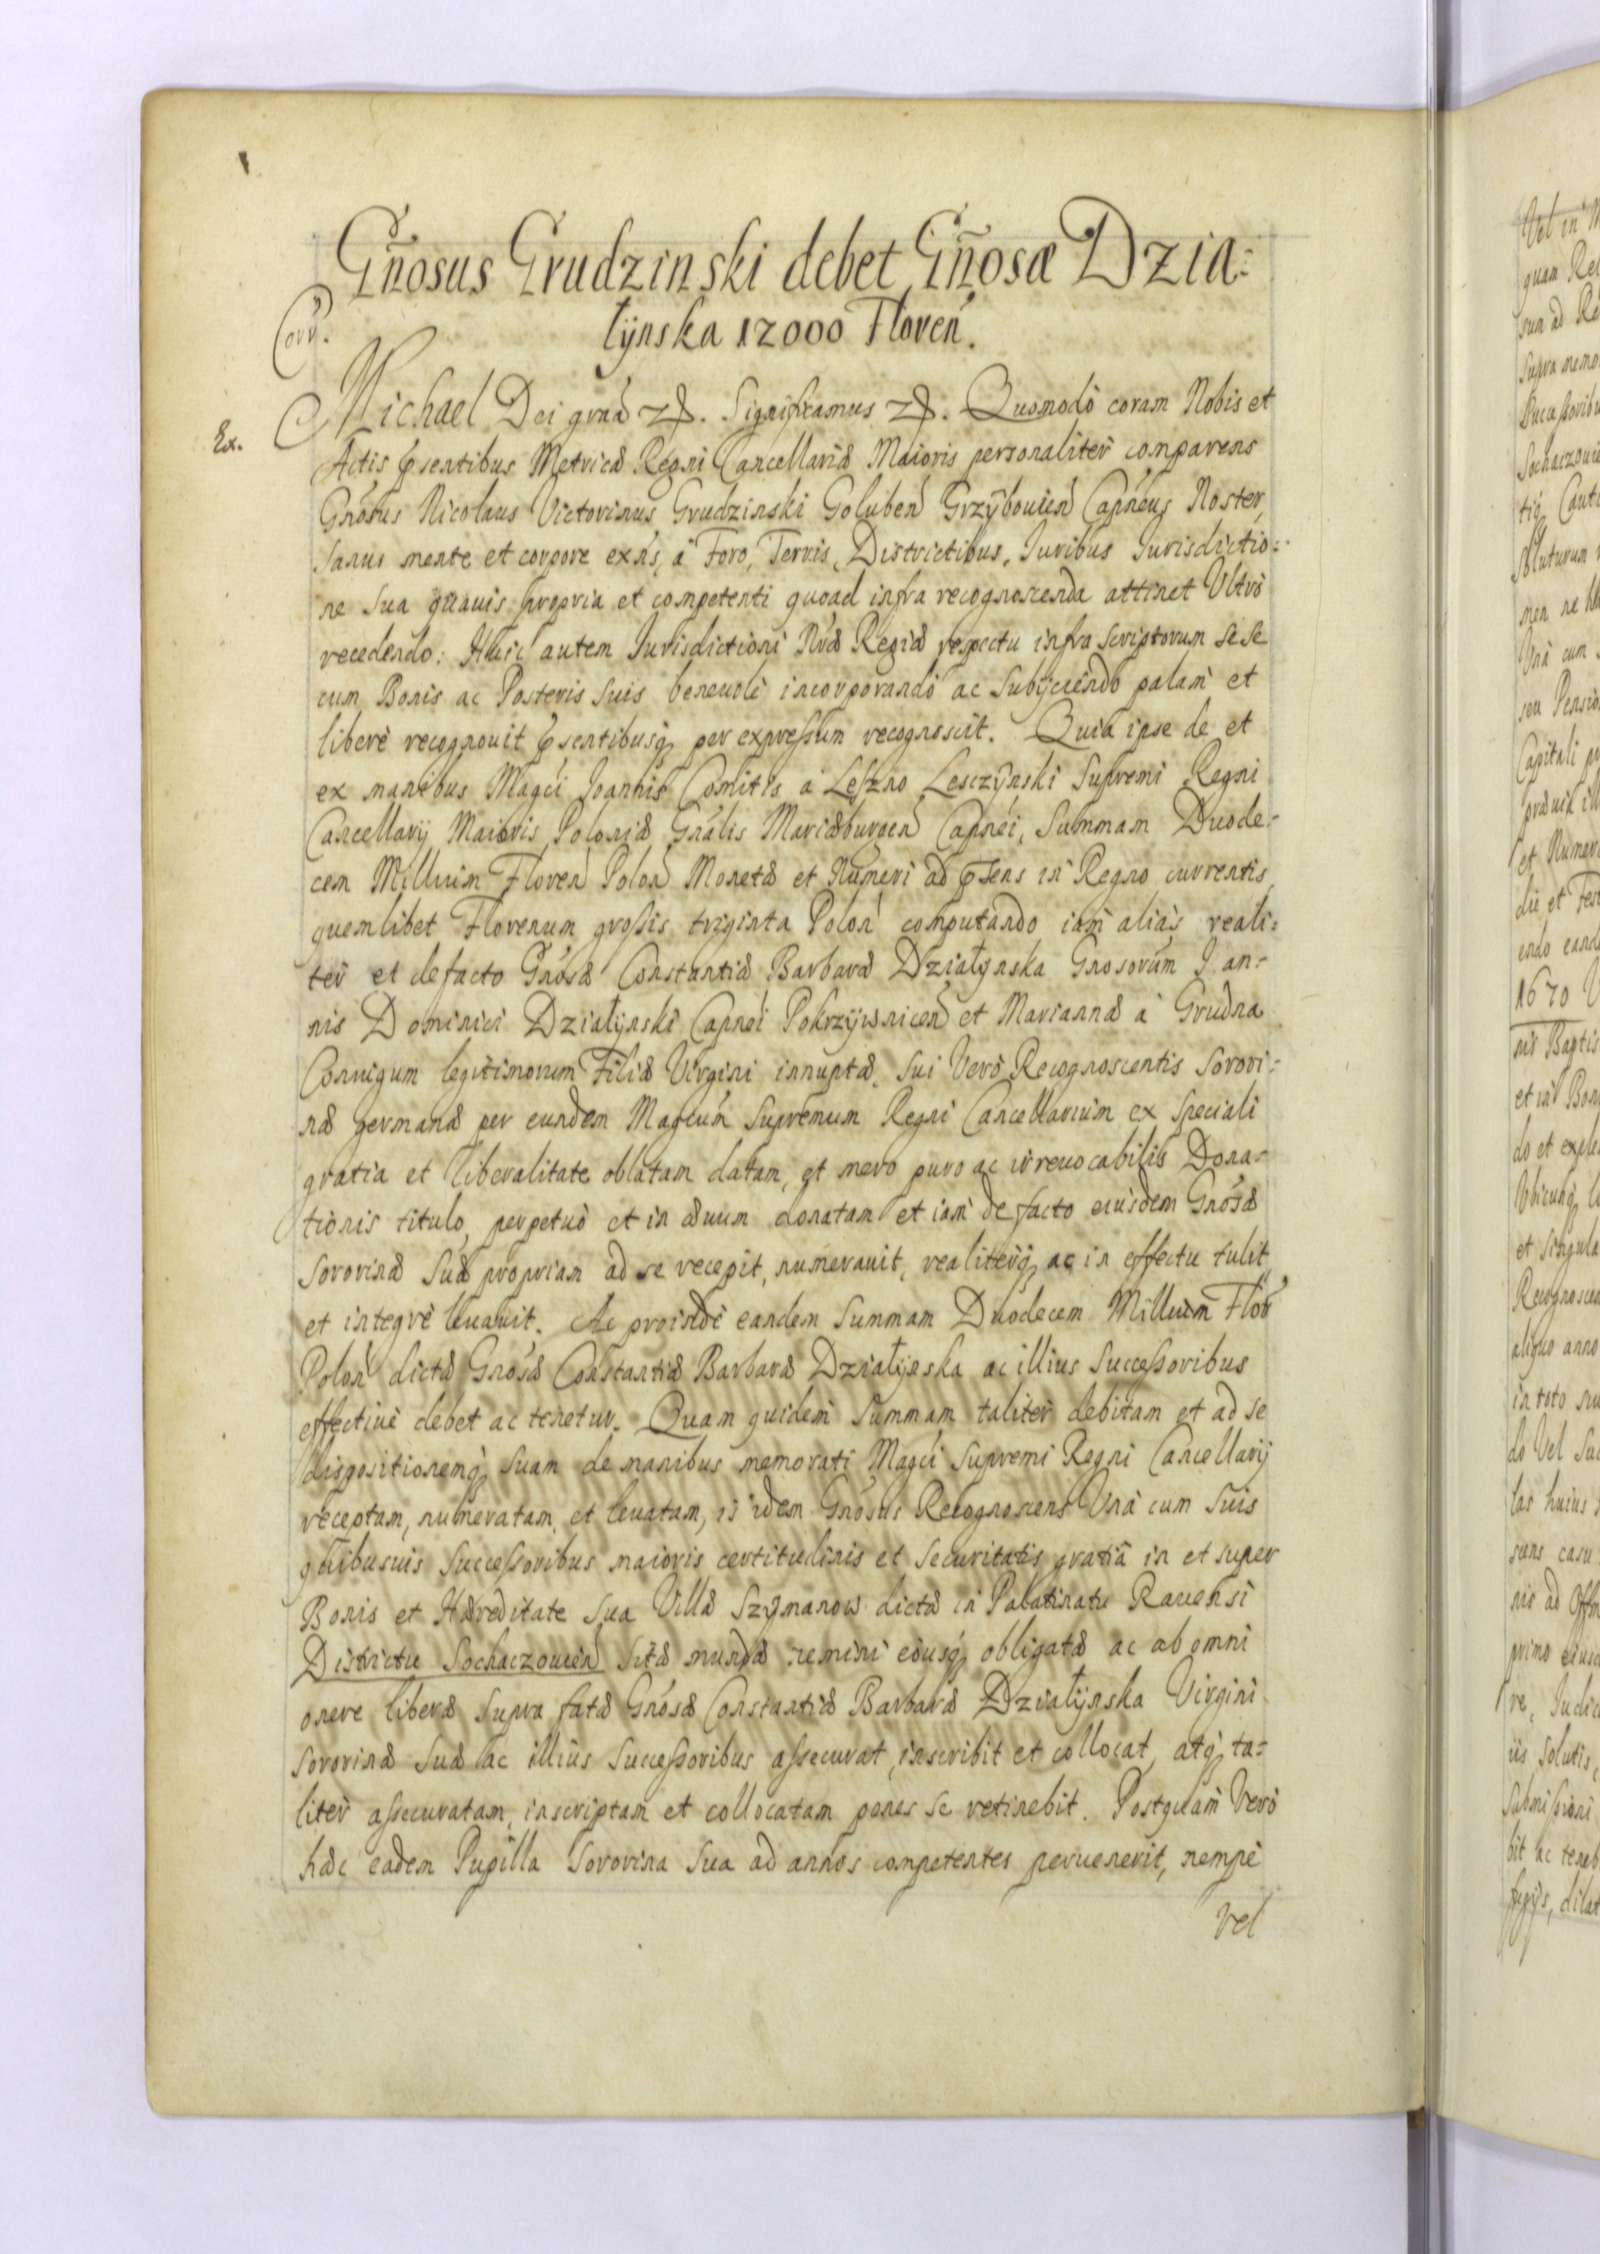 Gñosus Grudzinski debet Gñosæ Dzia:
łÿnska 12000 Floren̄.
Corr̄.
Michael Dei grãa etc. Significamus etc. Quomodò coram Nobis et
Ex.
Actis p̃sentibus Metricæ Regni Cancellariæ Maioris personalitèr comparens
Gnósus Nicolaus Victorinus Grudzinski Goluben̄ Grzÿbouien̄ Capnéus Noster,
sanus mente et corpore exńs, á Foro, Terris, Districtibus, Iuribus Iurisdictio:
ne sua quauis propria et competenti quoad infra recognoscenda attinet Vltrò
recedendo: Huic autem Iurisdictioni Nræ Regiæ respectu infra scriptorum sese
cum Bonis ac Posteris suis beneuolè incorporandò ac subÿciendo palam et
liberè recognouit p̃sentibusq̨ per expreſsum recognoscit. Quia ipse de et
ex manibus Magći Joannis Comitis á Leſzno Lesczÿnski Supremi Regni
Cancellarÿ Maioris Poloniæ Gnális Mariæburgen̄ Capnéi, Summam Duode:
cem Millium Floren̄ Polon̄ Monetæ et Numeri ad p̃sens in Regno currentis
quemlibet Florenum groſsis triginta Polon̄ computando iam aliàs reali:
tèr et de facto Gnósæ Constantiæ Barbaræ Działÿnska Gnosorúm Joan:
nis Dominici Działÿnski Capnéi Pokrzÿwnicen̄ et Mariannæ à Grudna
Coniugum legitimorum Filiæ Virgini innuptæ, sui Verò Recognoscentis Sorori:
næ germanæ per eundem Magcúm Supremum Regni Cancellarium ex speciali
gratia et liberalitate oblatam datam, et mero puro ac irreuocabilis Dona:
tionis titulo, perpetuò et in æuum donatam et iam de facto eiusdem Gnósæ
Sororinæ suæ propriam ad se recepit, numerauit, realitèrq̨ ac in effectu tulit
et integrè leuauit. Ac proindè eandem Summam Duodecem Millium Flor̄
Polon̄ dictæ Gnósæ Constantiæ Barbaræ Działÿnska ac illius Succeſsoribus
effectiuè debet ac tenetur. Quam quidem Summam talitèr debitam et ad se
dispositionemq̨ suam de manibus memorati Magći Supremi Regni Cancellarÿ
receptam, numeratam, et leuatam, is idem Gnósus Recognoscens Vnà cum suis
quibusuis Succeſsoribus maioris certitudinis et securitatis gratiâ in et super
Bonis et Hæreditate sua Villæ Szÿmanow dictæ in Palatinatu Rauensi
Districtu Sochaczouien̄ sitæ mundæ nemini eòusq̨ obligatæ ac ab omni
onere liberæ supra fatæ Gnósæ Constantiæ Barbaræ Działÿnska Virgini
Sororinæ suæ ac illius Succeſsoribus aſsecurat, inscribit et collocat, atq̨ ta:
litèr aſsecuratam, inscriptam et collocatam penes se retinebit. Postquam Verò
hæc eadem Pupilla Sororina sua ad annos competentes peruenerit, nempè
vel